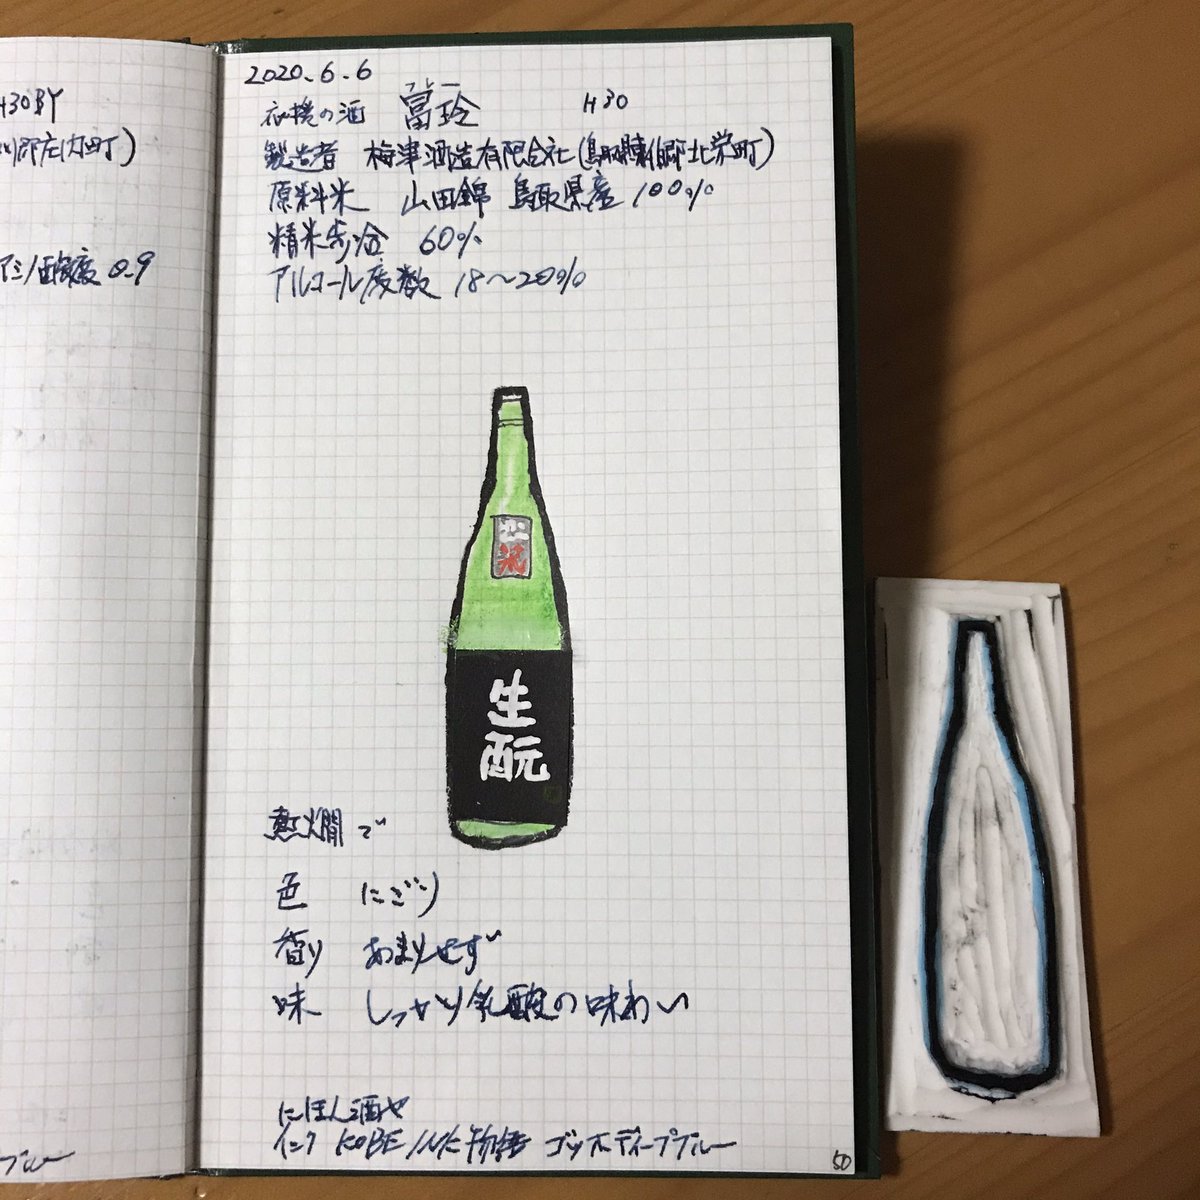 H30BY
郡庄内町)
アミノ酸度 0.9
2020.6.6
フレー
応援の酒 冨玲 H30
製造者 梅津酒造有限会社(鳥取県東伯郡北栄町)
原料米 山田錦 鳥取県産100%
精米歩合 60%
アルコール度数 18〜20%
生
酛
熱燗で
色 にごり
香り あまりせず
味 しっかり乳酸の味わい
にほん酒や
インク KOBE INK物語 ゴッホディープブルー
ブルー
50